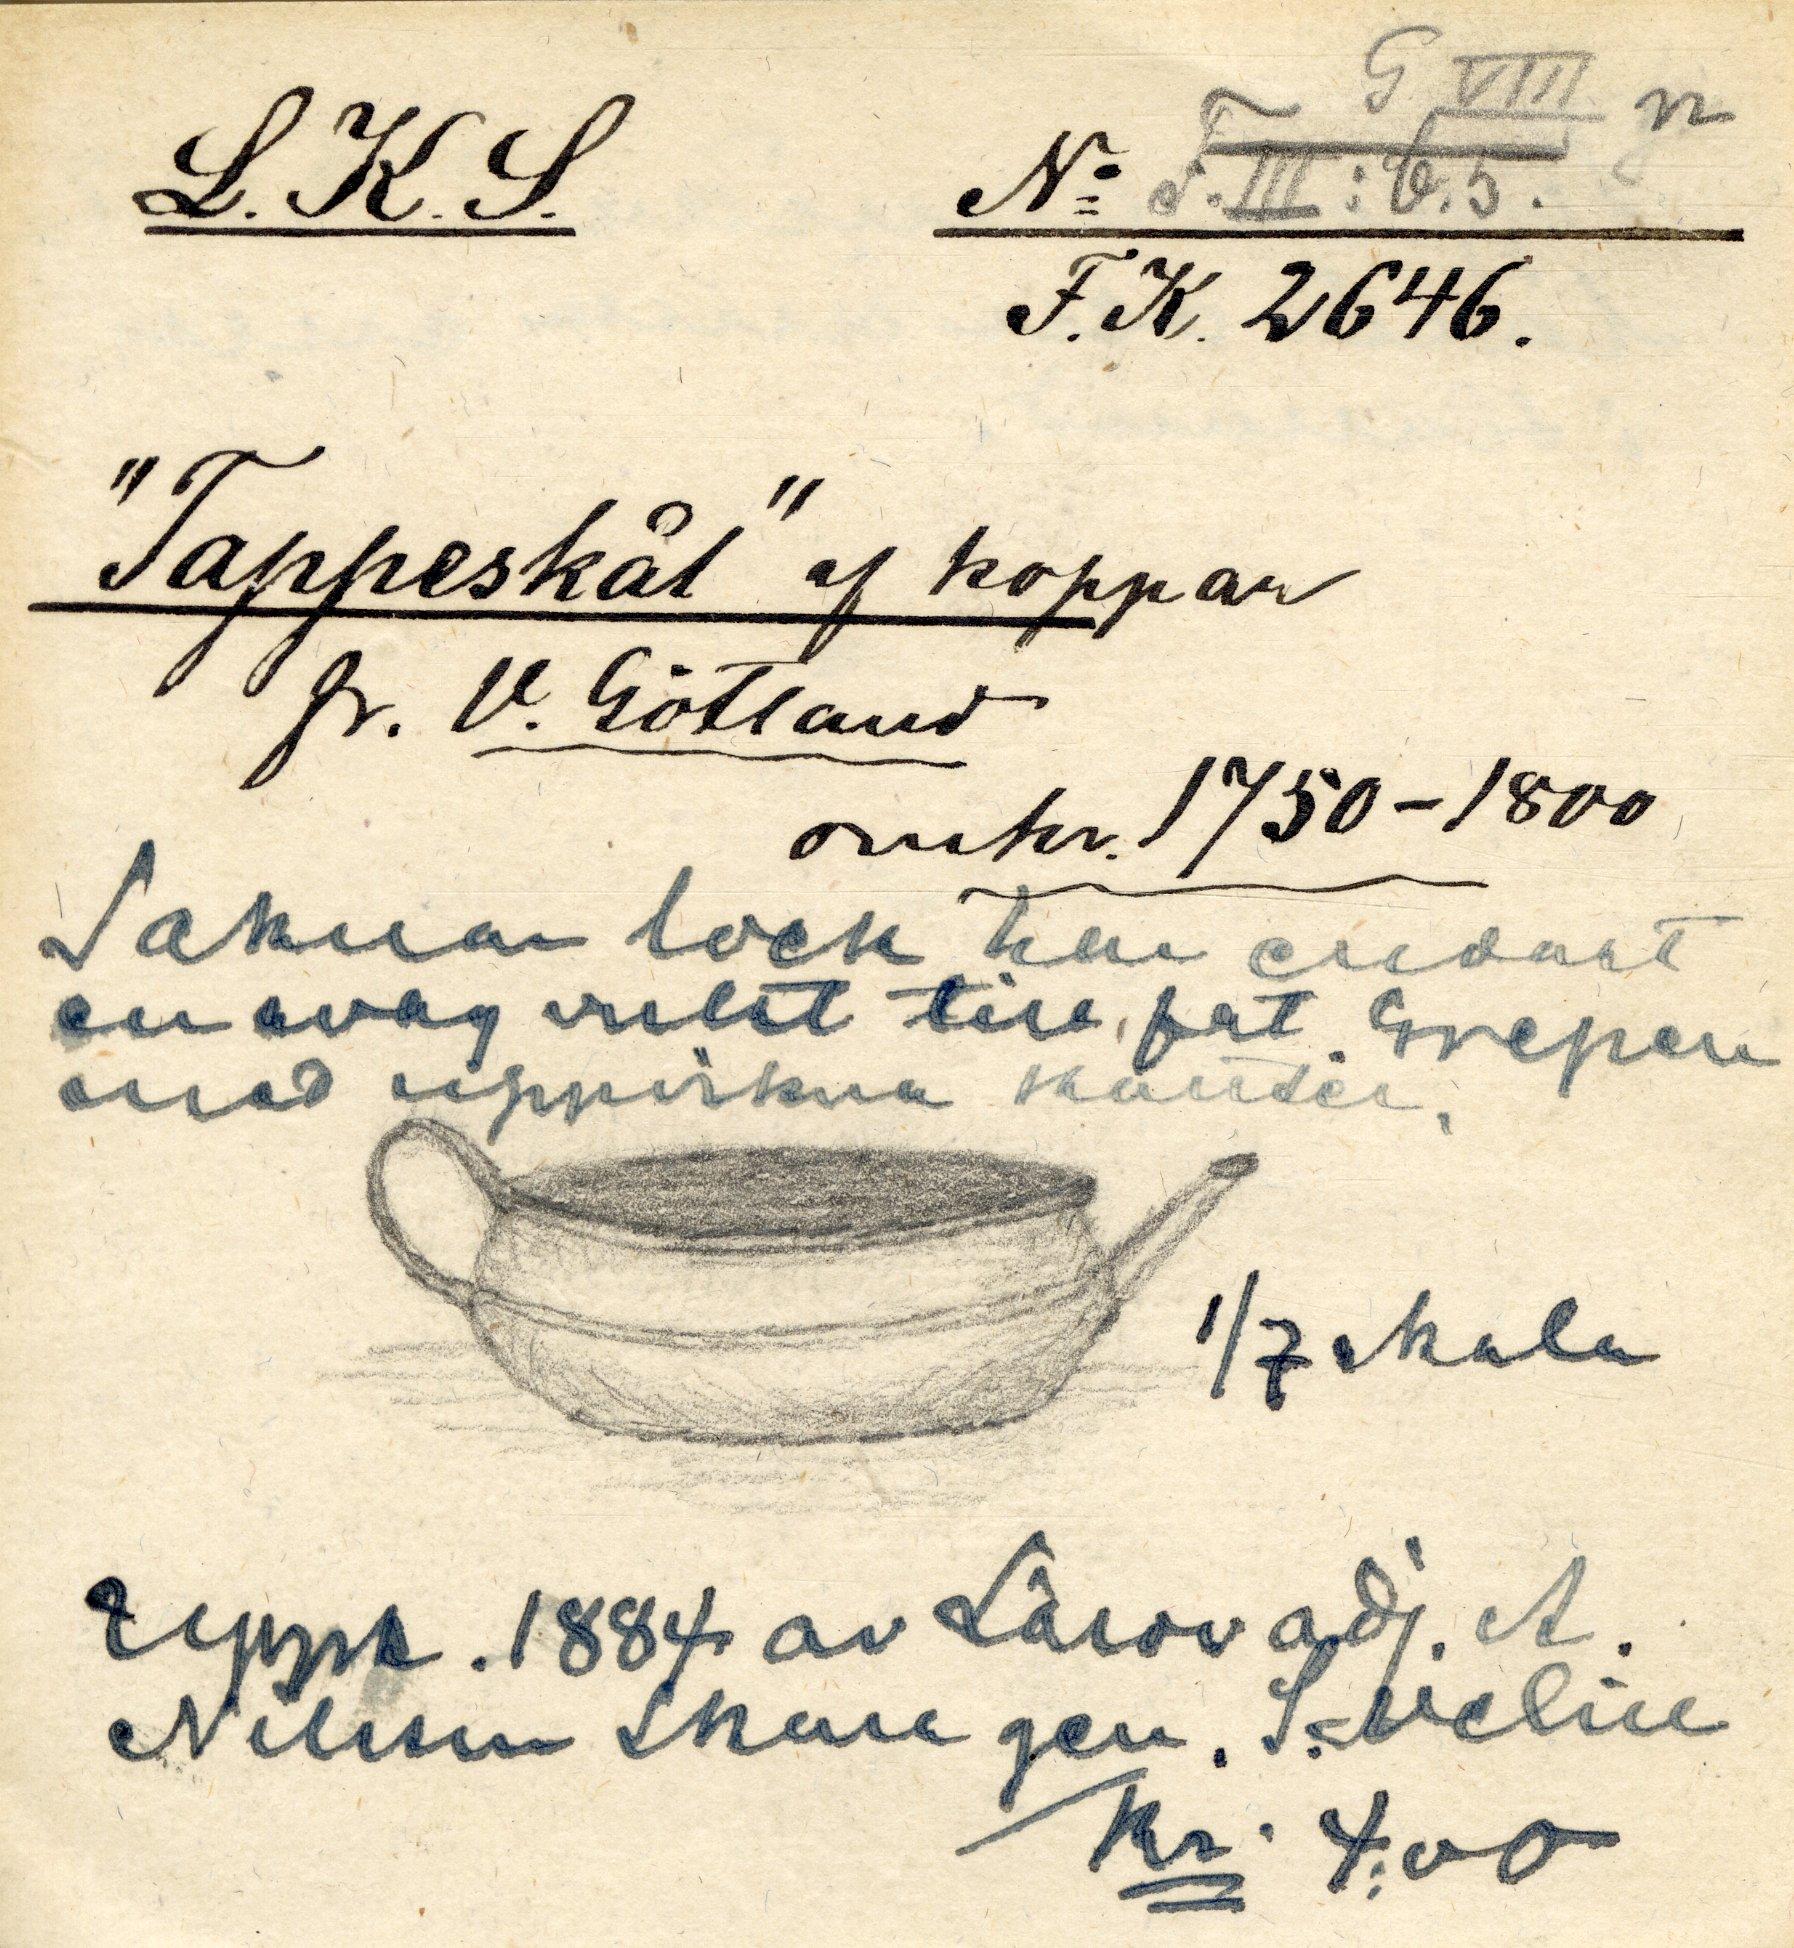 L.K.S.
G VIII
No F. III : b.5.
F.K. 2646.
"Tappeskål" af koppar
fr. V. Götland
omkr. 1750–1800
Saknar lock har endast
en svag vulst till fat. Grepen
med uppvikna kanter.
1/7 skala
Uppk. 1884 av Lärov adj. A.
Nilsson Skara gen. S. Welin
Kr. 4:00